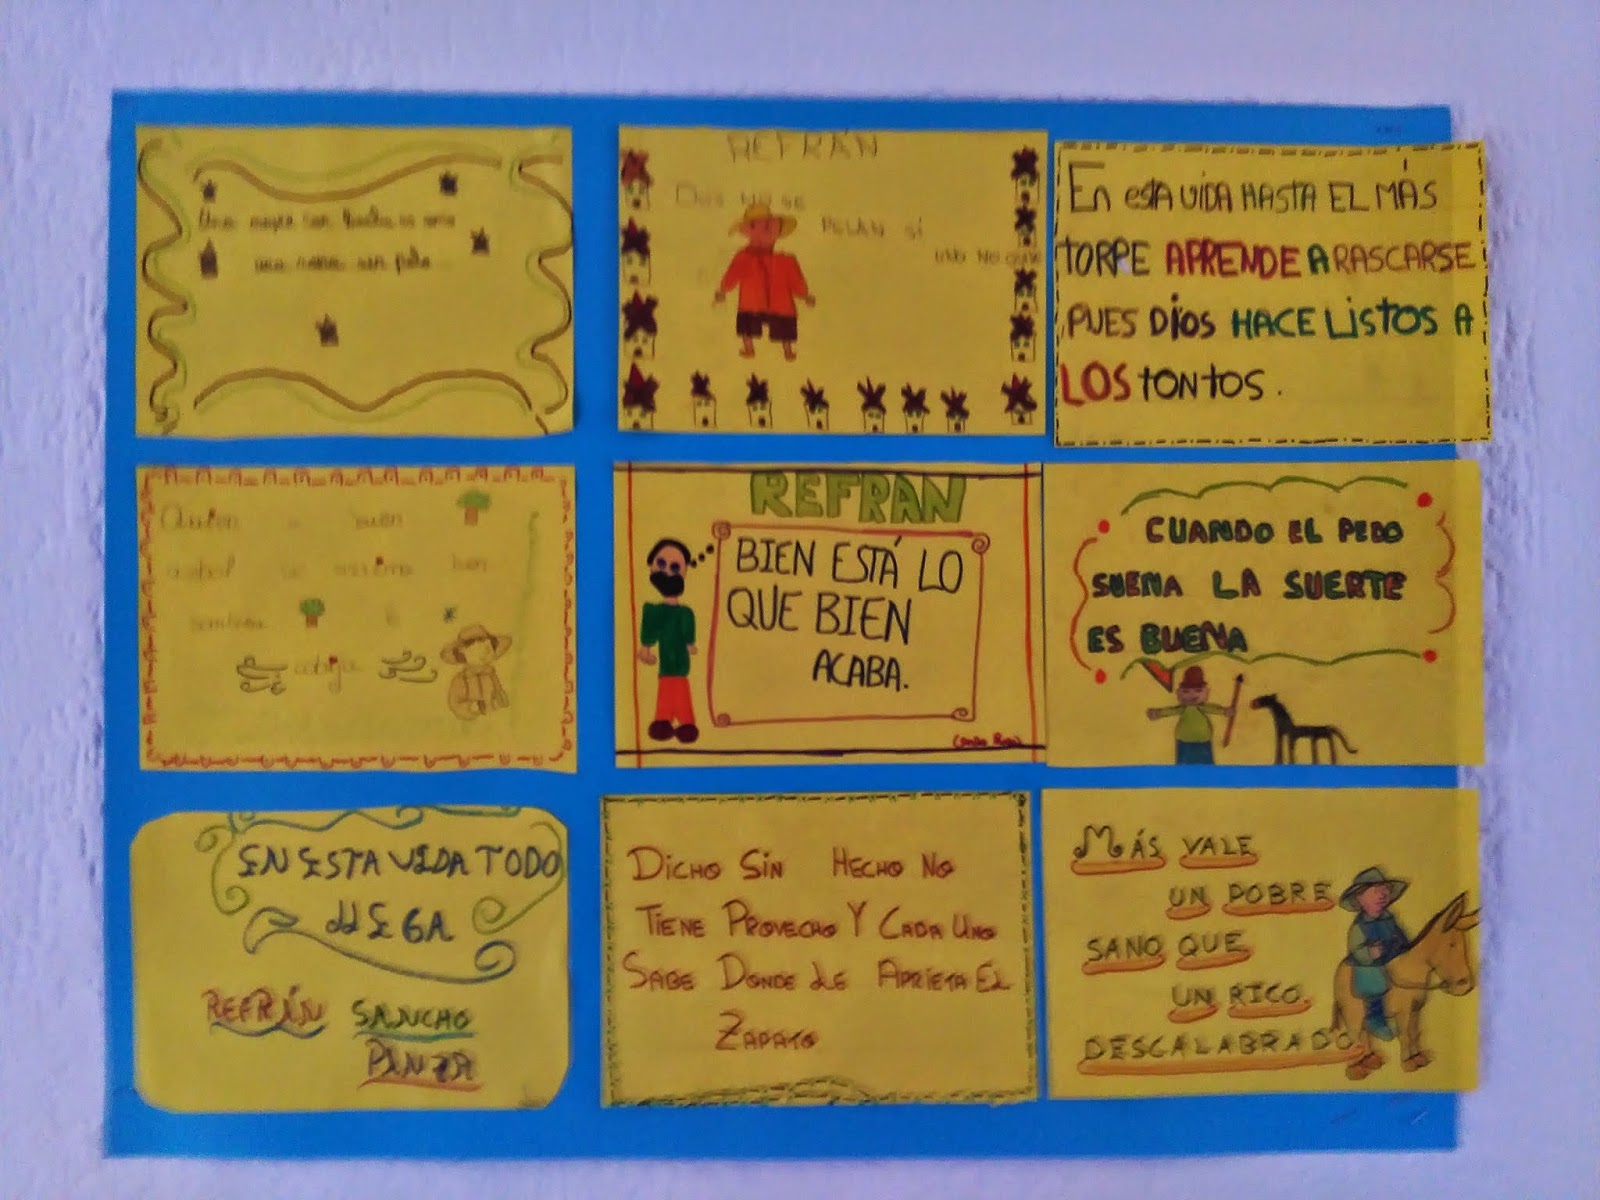 una
una sin pelo
REFRÁN
DOS NO SE
PELAN SI
UNO NO
En esta VIDA HASTA EL MÁS
TORPE APRENDE A RASCARSE
PUES DIOS HACE LISTOS A
LOS TONTOS.
Quien a buen
arbol se arrima buen
sombra
REFRAN
BIEN ESTÁ LO
QUE BIEN
ACABA.
CUANDO EL PEDO
SUENA LA SUERTE
ES BUENA
EN ESTA VIDA TODO
LLEGA
REFRÁN SANCHO
PANZA
DICHO SIN HECHO NO
TIENE PROVECHO Y CADA UNO
SABE DONDE LE APRIETA EL
ZAPATO
MÁS VALE
UN POBRE
SANO QUE
UN RICO
DESCALABRADO